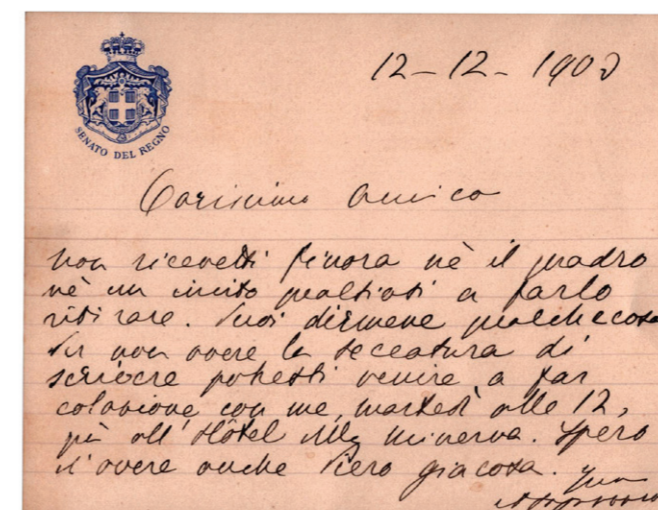 SENATO DEL REGNO
12-12-1903
Carissimo Amico
non ricevetti finora nè il quadro
nè un invito qualsiasi a farlo
ritirare. Puoi dirmene qualchecosa
Per non avere la seccatura di
scrivere potresti venire a far
colazione con me, martedì alle 12,
all' Hôtel della Minerva. Spero
d'avere anche Piero Giacosa.